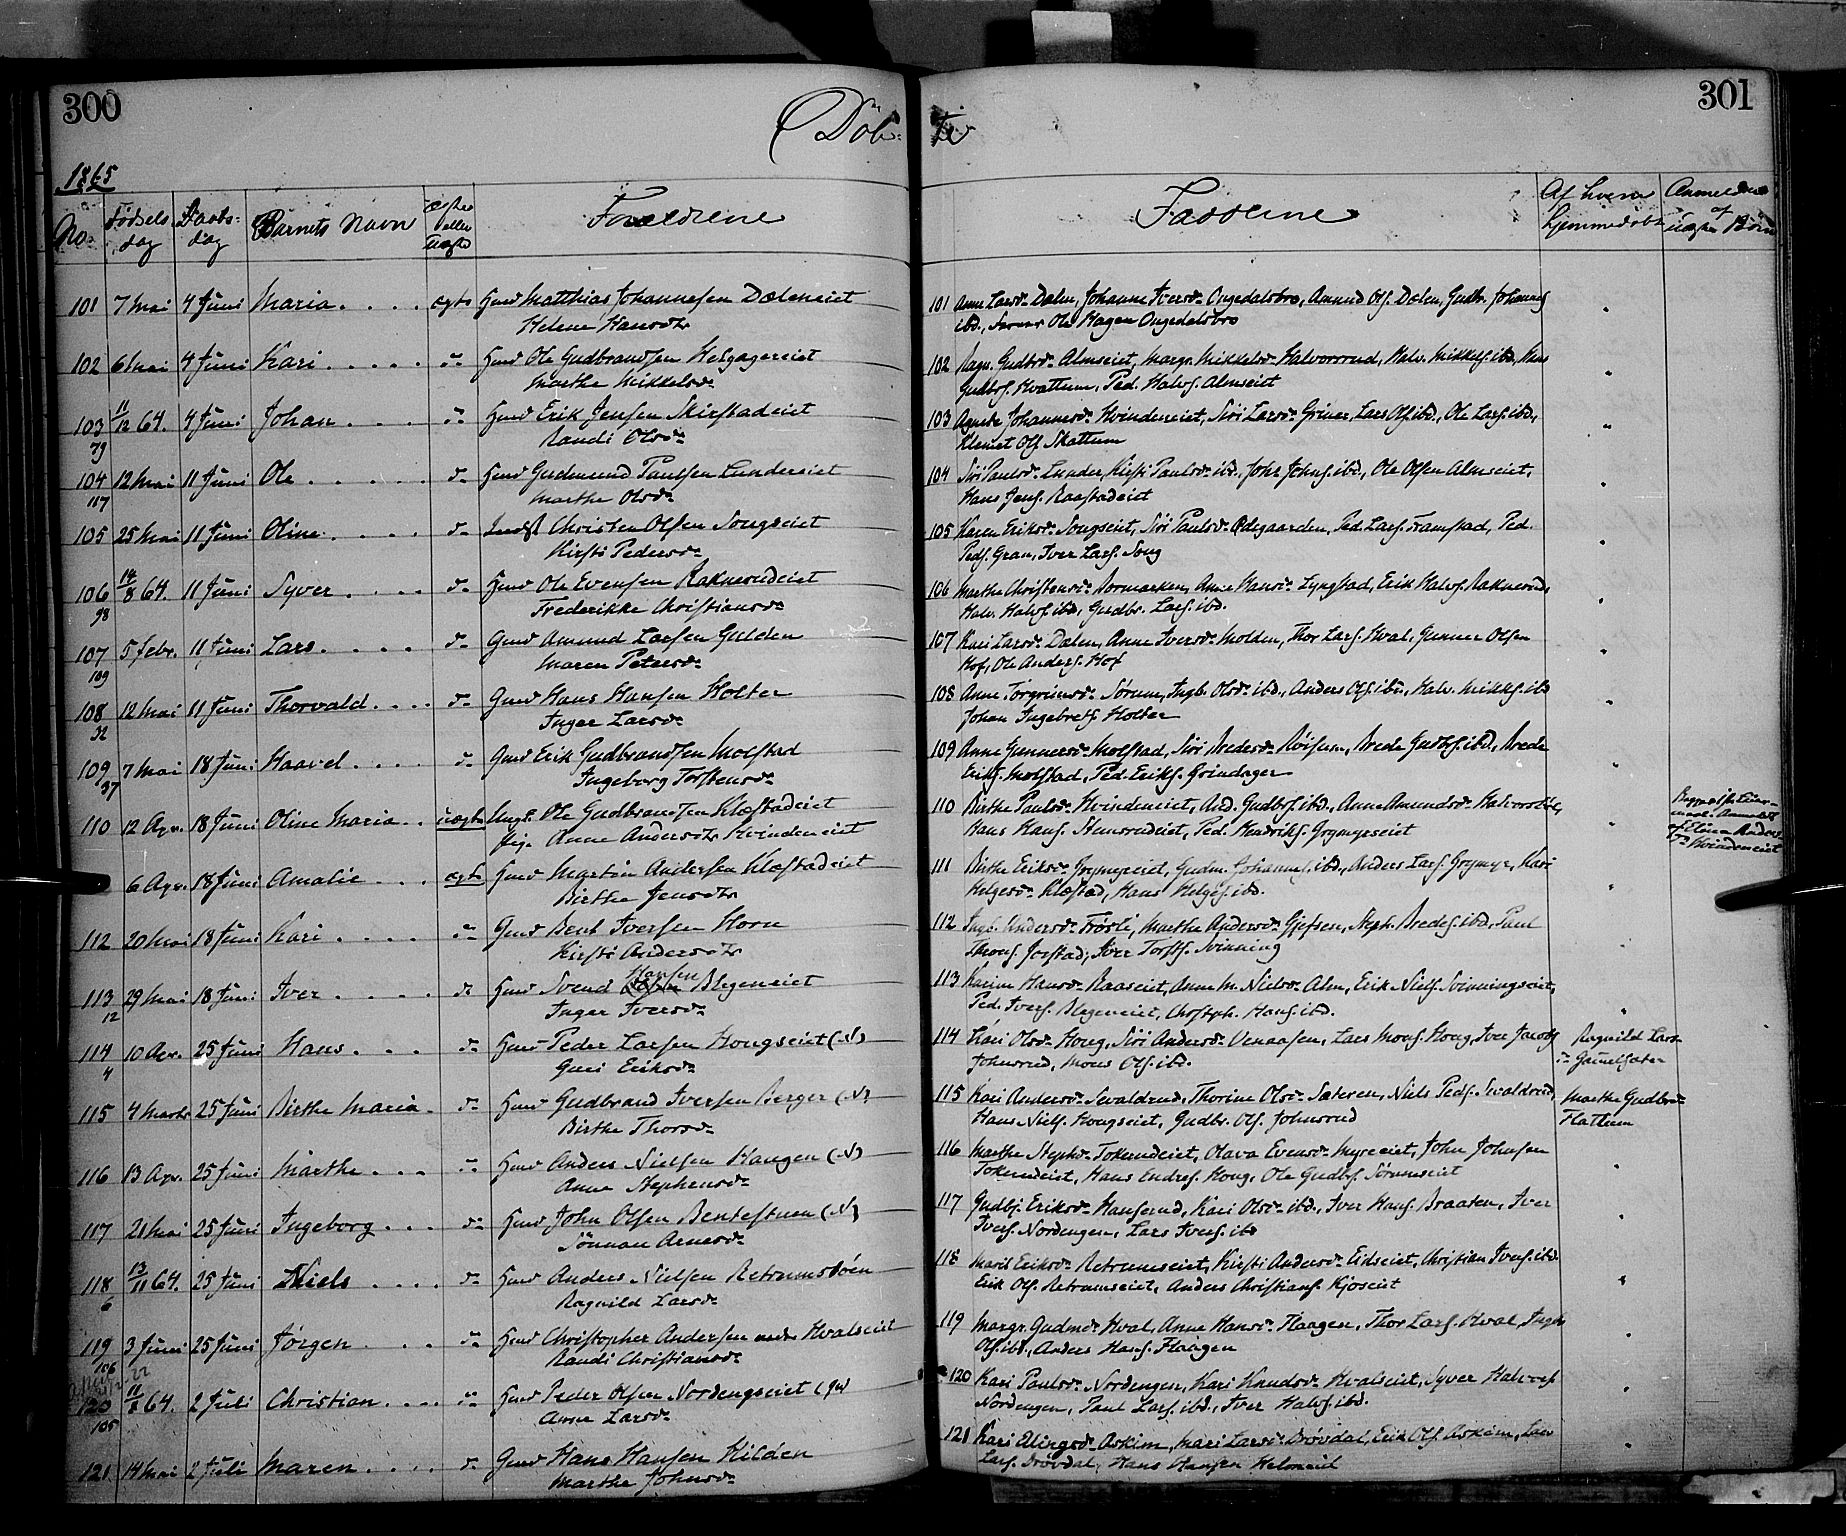 300
Døb
1865
No. Fødsels dag Daabs dag Barnets Navn ægte eller uægte Forældrene
101 7 Mai 4 Juni Maria. ægte Huusm Matthias Johannesen Dæleneiet
Helene Hansdtr
102 6 Mai 4 Juni Kari Ole Gudbrandsen Helgagereiet
Marthe Mikkelsd.
103 11/12 64. 4 Juni Johan Erik Jensen Skirstadeiet
79 Randi Olsd.
104 12 Mai 11 Juni Ole Gudmund Paulsen Lundereiet
117 Marthe Olsd.
105 25 Mai 11 Juni Oline Christen Olsen Songseiet
Kirsti Pedersd.
106 14/8 64. 11 Juni Syver Ole Evensen Raknerudeiet
98 Frederikke Christiansd.
107 5 Febr. 11 Juni Lars Amund Larsen Gulden
109 Maren Petersd.
108 12 Mai 11 Juni Thorvald Hans Hansen Holter
32 Inger Larsd.
109 7 Mai 18 Juni Haavel Erik Gudbrandsen Molstad
37 Ingeborg Torstensd.
110 12 Apr. 18 Juni Oline Maria uægte Ungk. Ole Gudbrandsen Klæstadeiet
Pige Anne Andersdtr Hvindeneiet
6 Apr. 18 Juni Amalie ægte Martin Andersen Klæstadeiet
Birthe Jensdtr
112 20 Mai 18 Juni Kari Bent Iversen Horn
Kirsti Andersdtr
113 29 Mai 18 Juni Iver Svend Hansen Blegeneiet
12 Inger Iversd.
114 10 Apr. 25 Juni Hans Peder Larsen Hougseiet (N)
4 Guri Eriksd.
115 4 Marts 25 Juni Birthe Maria Gudbrand Iversen Berger (N)
Birthe Thorsd.
116 13 Apr. 25 Juni Marthe Anders Nielsen Haugen (N)
Anne Stephensd.
117 21 Mai 25 Juni Ingeborg John Olsen Bentestuen (N)
Sönnau Arnesd.
118 13/11 64. 25 Juni Niels Anders Nielsen Retrumsböen
6 Ragnild Larsd.
119 3 Juni 25 Juni Jørgen Christopher Andersen Hvalseiet
106 Randi Christiansd.
120 11/8 64. 2 Juli Christian Peder Olsen Nordengseiet
105 Anne Larsd.
121 14 Mai 2 Juli Maren Hans Hansen Hilden
Marthe Johnsd.
301
te
Fadderne Af hvem hjemmedøbt Anmeldelse af uægte Børn
101 Anne Larsd. Dælen, Johanne Iversd. Ongedalsbro, Amund Ols. Dælen, Gudbr. Johannes
ibd., Ole Hagen Ongedalsbro
102 Ragn. Gudbrd. Almseiet, Margr. Mikkelsd. Halvorsrud, Halv. Mikkels. ibd., Hans
Gudbrs. Hvattum, Ped. Halvs. Almseiet
103 Agnete Johannesd. Hvindeneiet, Siri Larsd. Griner, Lars Ols. ibd., Ole Lars. ibd.,
Klemet Ols. Skattum
104 Siri Paulsd. Lunder, Kirsti Paulsd. ibd., Johs. Johns. ibd., Ole Olsen Almseiet,
Hans Jens. Raastadeiet
105 Karen Eriksd. Songseiet, Siri Paulsd. Ødegaarden, Ped. Lars. Framstad, Ped.
Peds. Gran, Iver Lars. Song
106 Marthe Christensd. Hormarken, Anne Hansd. Lyngstad, Erik Halvs. Raknerud,
Halv. Halvs. ibd., Gudbr. Lars. ibd.
107 Kari Larsd. Dælen, Anne Iversd. Molden, Thor Lars. Hval, Gunner Olsen
Hof, Ole Anders. Hof
108 Anne Torgrimsd. Sørum, Ingb. Olsd. ibd., Anders Ols. ibd., Halv. Mikks. ibd
Johan Ingebrets. Holter
109 Anne Gunnersd. Molstad, Siri Bredesd. Röisum, Brede Gudbs. ibd., Brede
Eriks. Molstad, Ped. Eriks. Grindager
110 Birthe Paulsd. Hvindeneiet, And. Gudbrs. ibd., Anne Amundsd.
Hans Hans. Stensrudeiet, Ped. Hendriks. Grymyrseiet
Anmeldt af Eline Andersd. Hvindeneiet
111 Birthe Eriksd. Grymyreiet, Gudm. Johannes. ibd., Anders Lars. Grymyr, Kari
Helgesd. Klæstad, Hans Helges. ibd.
112 Ingb. Andersd. Frösli, Marthe Andersd. Gjefsen, Steph. Bredes. ibd., Paul
Thoms. Jorstad, Iver Torsts. Svinning
113 Karine Hansd. Raaseiet, Anne M. Nielsd. Alm, Erik Niels. Svinningseiet,
Ped. Ivers. Blegeneiet, Chrstph. Hans. ibd.
114 Kari Olsd. Houg, Siri Andersd. Venaasen, Lars Mons. Houg, Iver Jacobs.
Johnsrud, Mons Ols. ibd.
Ragnild Larsd. Gamelsæter
115 Kari Andersd. Sevaldrud, Thorine Olsd. Sæteren, Niels Peds. Sevaldrud,
Hans Niels. Hougseiet, Gudbr. Ols. Johnsrud
Marthe Gudbrd. Flattum
116 Marthe Stephd. Tokerudeiet, Olava Evensd. Myreeiet, John Johnsen
Tokerudeiet, Hans Endres. Houg, Ole Gudbrs. Sörumseiet
117 Gudbj. Eriksd. Hanserud, Kari Olsd. ibd., Iver Hans. Braaten, Iver
Ivers. Nordengen, Lars Ivers. ibd
118 Marit Eriksd. Retrumseiet, Kirsti Andersd. Eidseiet, Christian Ivers. ibd.
Erik Ols. Retrumseiet, Anders Christians. Kjoseiet
119 Margr. Gudmd. Hval, Anne Hansd. Flaagen, Thor Lars. Hval, Ingbr.
Ols. ibd., Anders Hans. Flaagen
120 Kari Paulsd. Nordengen, Kari Knudsd. Hvalseiet, Syver Halvors.
Nordengen, Paul Lars. ibd., Iver Halvs. ibd.
121 Kari Elingsd. Askim, Mari Larsd. Drövdal, Erik Ols. Askim, Lars
Lars. Drövdal, Hans Hansen